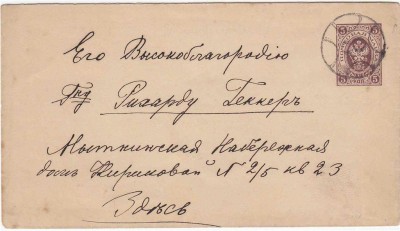 Его Высокоблагородію
Гну Рихарду Геккеръ
Мытнинская Набережная
домъ Жериковой N 2/5 кв 23
Здѣсь
5 5
5 5